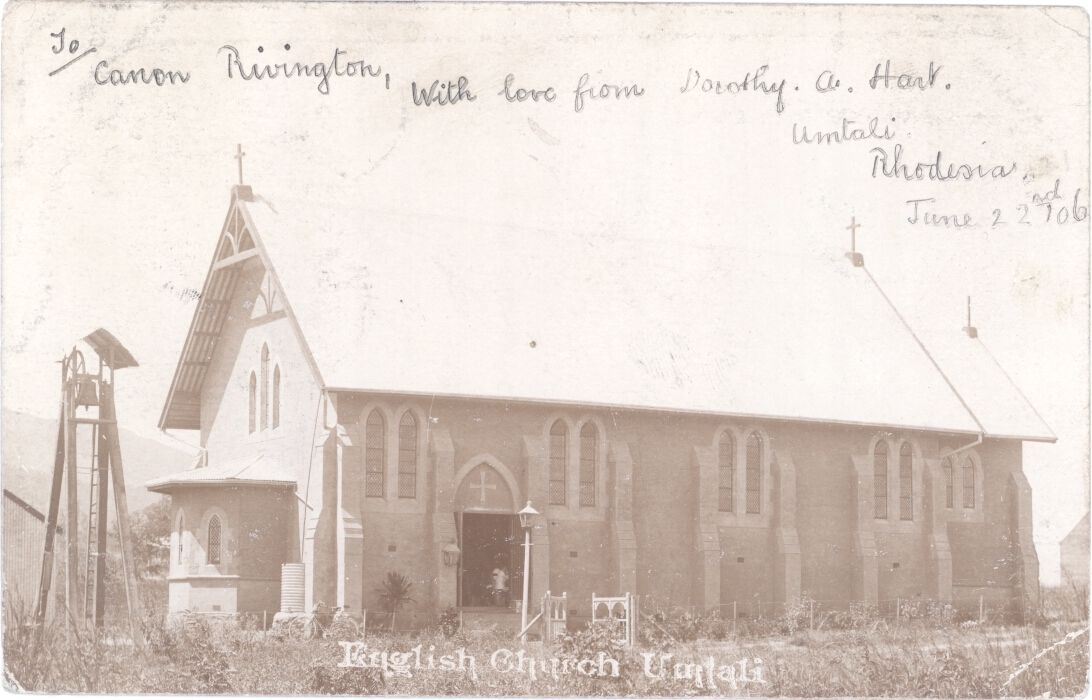 To
Canon Rivington,
With love from Dorothy. A. Hart.
Umtali.
Rhodesia.
June 22nd 06
English Church Umtali